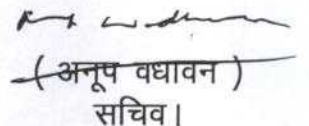 ( अनूप वधावन )
सचिव।